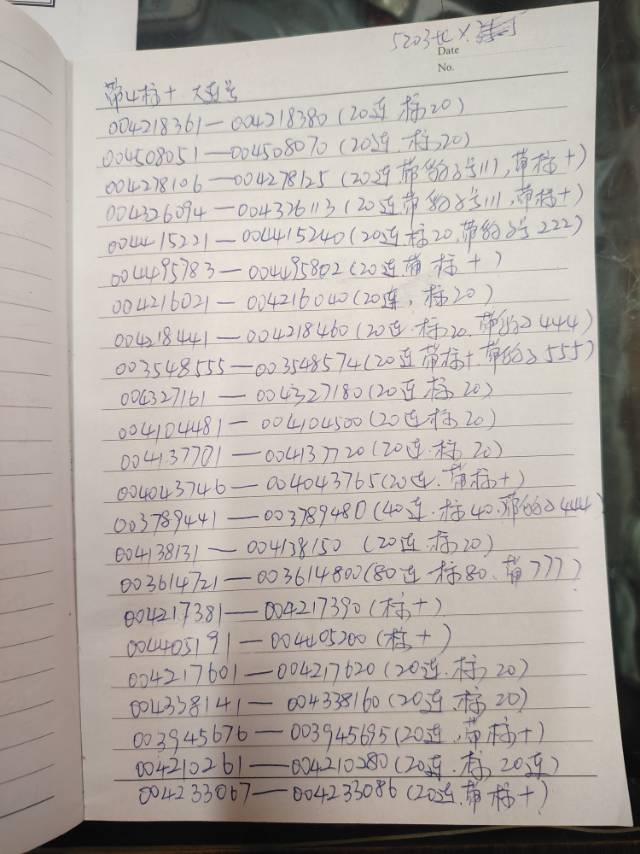 5203北X
Date
No.
带4标十 大连号
004218361—004218380(20连.标20)
004508051—004508070(20连.标20)
004278106—004278125(20连带豹子号111,带标十)
004326094—004326113(20连带豹子号111,带标十)
004415221—004415240(20连标20.带豹子号222)
004495783—004495802(20连带标十)
004216021—004216040(20连,标20)
004218441—004218460(20连.标20.带豹子444)
003548555—003548574(20连带标十.带豹子555)
004327161—004327180(20连标20)
004104481—004104500(20连.标20)
004137701—004137720(20连.标20)
004043746—004043765(20连.带标十)
003789441—003789480(40连.标40.带豹子444
004138131—004138150(20连.标20)
003614721—003614800(80连.标80.带777)
004217381—004217390(标十)
004405191—004405200(标十)
004217601—004217620(20连.标20)
004338141—004338160(20连.标20)
003945676—003945695(20连.带标十)
004210261—004210280(20连.标20连)
004233067—004233086(20连.带标十)